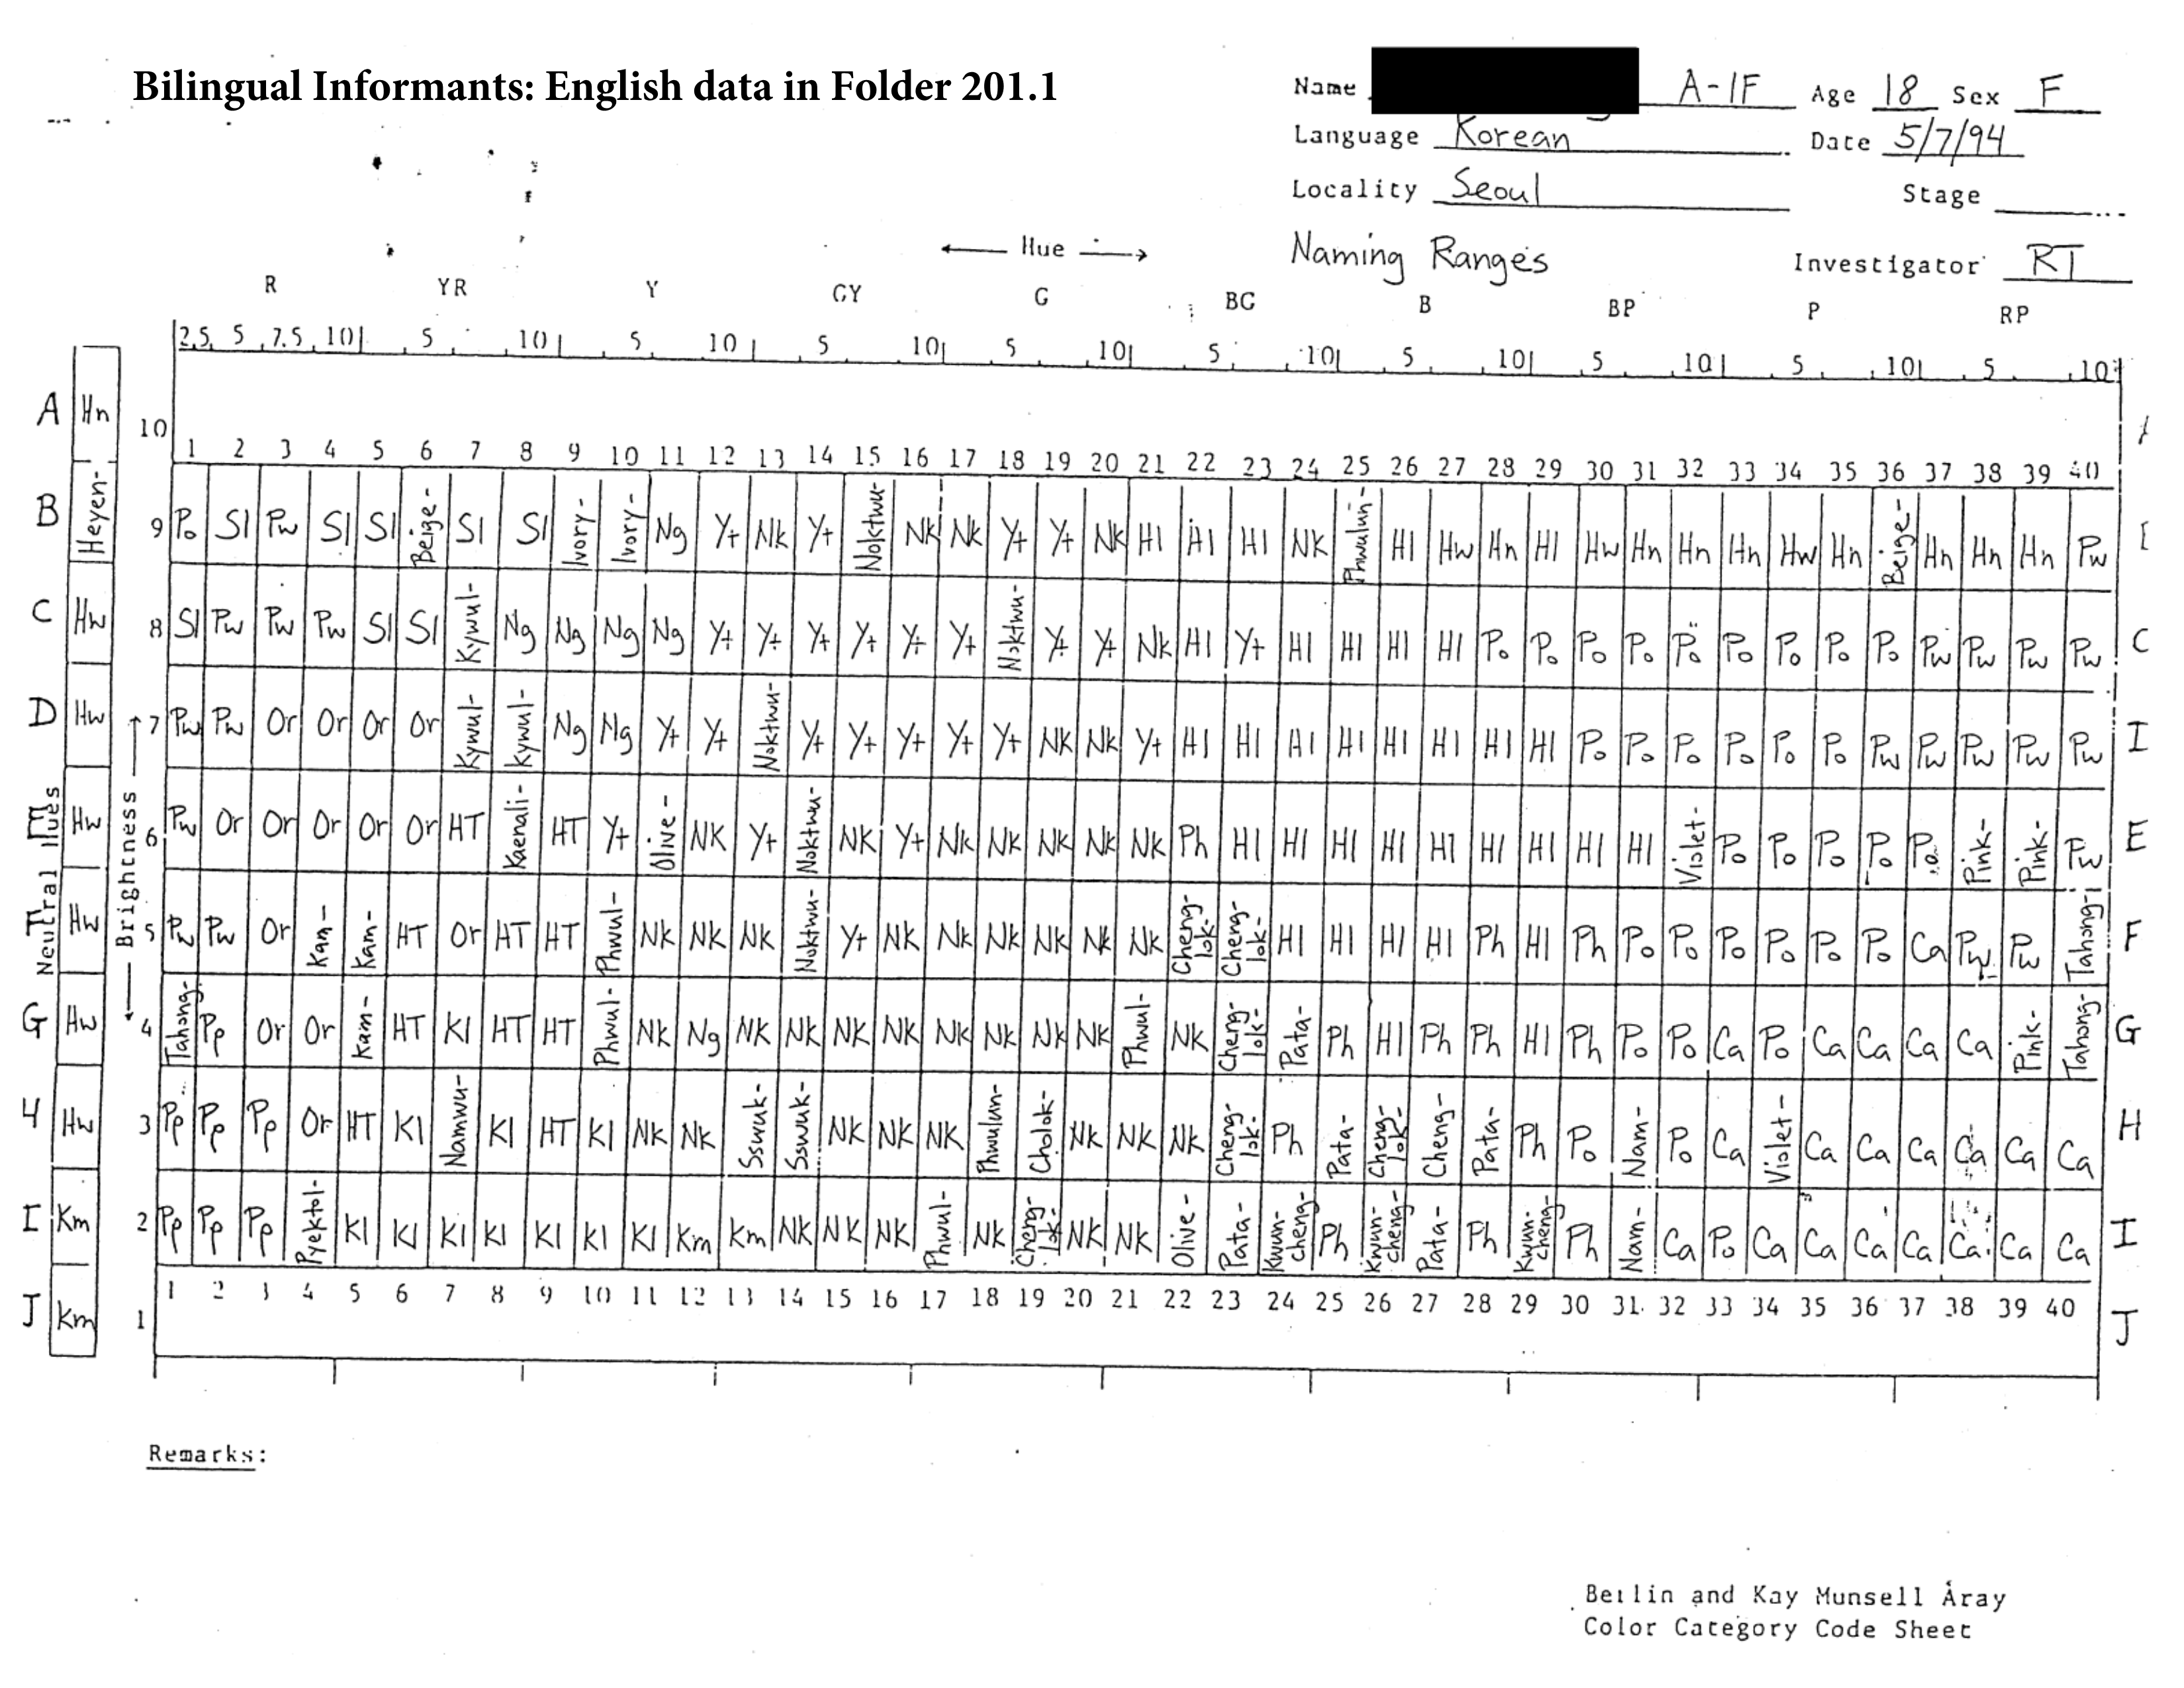 Bilingual Informants: English data in Folder 201.1
Name A-1F Age 18 Sex F
Language Korean Date 5/7/94
Locality Seoul Stage
← Hue → Naming Ranges Investigator RT
R YR Y GY G BG B BP P RP
2.5 5 7.5 10 5 10 5 10 5 10 5 10 5 10 5 10 5 10 5 10 5 10
A Hn 10
1 2 3 4 5 6 7 8 9 10 11 12 13 14 15 16 17 18 19 20 21 22 23 24 25 26 27 28 29 30 31 32 33 34 35 36 37 38 39 40
B Heyen- 9 Po Sl Pw Sl Sl Beige- Sl Sl Ivory- Ivory- Ng Y+ Nk Y+ Noktwu- Nk Nk Y+ Y+ Nk Hl Hl Hl Nk Phwulun- Hl Hw Hn Hl Hw Hn Hn Hn Hw Hn Beige- Hn Hn Hn Pw
C Hw 8 Sl Pw Pw Pw Sl Sl Kywul- Ng Ng Ng Ng Y+ Y+ Y+ Y+ Y+ Y+ Noktwu- Y+ Y+ Nk Hl Y+ Hl Hl Hl Hl Po Po Po Po Po Po Po Po Po Pw Pw Pw Pw C
D Hw 7 Pw Pw Or Or Or Or Kywul- Kywul- Ng Ng Y+ Y+ Noktwu- Y+ Y+ Y+ Y+ Y+ Nk Nk Y+ Hl Hl Hl Hl Hl Hl Hl Hl Po Po Po Po Po Po Pw Pw Pw Pw Pw I
E Hw 6 Pw Or Or Or Or Or HT Kaenali- HT Y+ Olive- NK Y+ Noktwu- NK Y+ Nk Nk Nk Nk Nk Ph Hl Hl Hl Hl Hl Hl Hl Hl Hl Violet- Po Po Po Po Po Pink- Pink- Pw E
Neutral Hues
← Brightness →
F Hw 5 Pw Pw Or Kam- Kam- HT Or HT HT Phwul- Nk Nk Nk Noktwu- Y+ Nk Nk Nk Nk Nk Nk Cheng-lok- Cheng-lok- Hl Hl Hl Hl Ph Hl Ph Po Po Po Po Po Po Ca Pw Pw Tahong- F
G Hw 4 Tahong- Pp Or Or Kam- HT Kl HT HT Phwul- Nk Ng Nk Nk Nk Nk Nk Nk Nk Nk Phwul- Nk Cheng-lok- Pata- Ph Hl Ph Ph Hl Ph Po Po Ca Po Ca Ca Ca Ca Pink- Tahong- G
H Hw 3 Pp Pp Pp Or HT Kl Namwu- Kl HT Kl Nk Nk Sswuk- Sswuk- Nk Nk Nk Phwulun- Cholok- Nk Nk Nk Cheng-lok- Ph Pata- Cheng-lok- Cheng- Pata- Ph Po Nam- Po Ca Violet- Ca Ca Ca Ca Ca Ca H
I Km 2 Pp Pp Pp Pyektol- Kl Kl Kl Kl Kl Kl Kl Km Km Nk Nk Nk Phwul- Nk Cheng-lok- Nk Nk Olive- Pata- Kwun-cheng- Ph Kwun-cheng- Pata- Ph Kwun-cheng- Ph Nam- Ca Po Ca Ca Ca Ca Ca Ca Ca I
1 2 3 4 5 6 7 8 9 10 11 12 13 14 15 16 17 18 19 20 21 22 23 24 25 26 27 28 29 30 31 32 33 34 35 36 37 38 39 40
J Km 1 J
Remarks:
Berlin and Kay Munsell Aray
Color Category Code Sheet